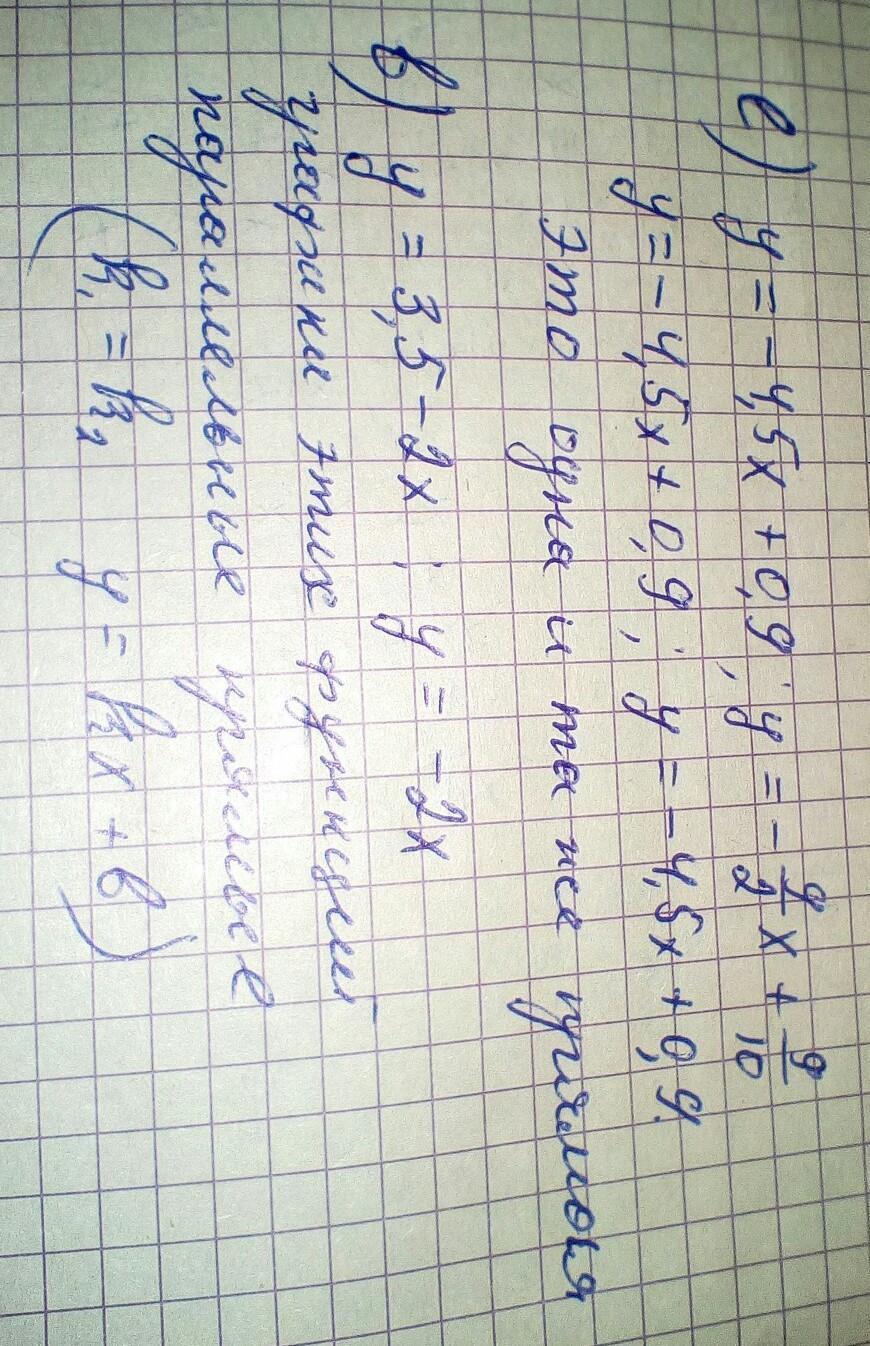 е) y = -4,5x + 0,9; y = -9/2 x + 9/10
y = -4,5x + 0,9; y = -4,5x + 0,9
Это одна и та же прямая
в) y = 3,5 - 2x; y = -2x
графики этих функций -
параллельные прямые
(k₁ = k₂ y = kx + b)